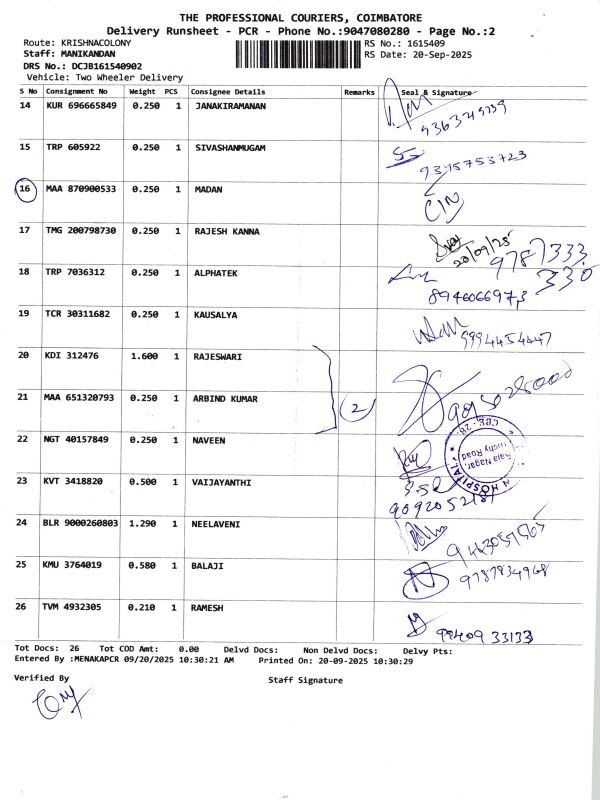 THE PROFESSIONAL COURIERS, COIMBATORE
Delivery Runsheet - PCR - Phone No.:9047080280 - Page No.:2
Route: KRISHNACOLONY RS No.: 1615409
Staff: MANIKANDAN RS Date: 20-Sep-2025
DRS No.: DCJB161540902
Vehicle: Two Wheeler Delivery
S No Consignment No Weight PCS Consignee Details Remarks Seal & Signature
14 KUR 696665849 0.250 1 JANAKIRAMANAN
15 TRP 605922 0.250 1 SIVASHANMUGAM
9345753723
16 MAA 870900533 0.250 1 MADAN
17 TMG 200798730 0.250 1 RAJESH KANNA
20/09/25
9787333
330
18 TRP 7036312 0.250 1 ALPHATEK
8946066973
19 TCR 30311682 0.250 1 KAUSALYA
9994454447
20 KDI 312476 1.600 1 RAJESWARI
21 MAA 651320793 0.250 1 ARBIND KUMAR 2
22 NGT 40157849 0.250 1 NAVEEN
CBE-28
Raja Nagar,
Trichy Road
HOSPITAL
23 KVT 3418820 0.500 1 VAIJAYANTHI
24 BLR 9000260803 1.290 1 NEELAVENI
25 KMU 3764019 0.580 1 BALAJI
9787834968
26 TVM 4932305 0.210 1 RAMESH
99409 33133
Tot Docs: 26 Tot COD Amt: 0.00 Delvd Docs: Non Delvd Docs: Delvy Pts:
Entered By :MENAKAPCR 09/20/2025 10:30:21 AM Printed On: 20-09-2025 10:30:29
Verified By Staff Signature